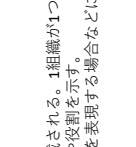 成される。1組織が1つ
や役割を示す。
を表現する場合などに